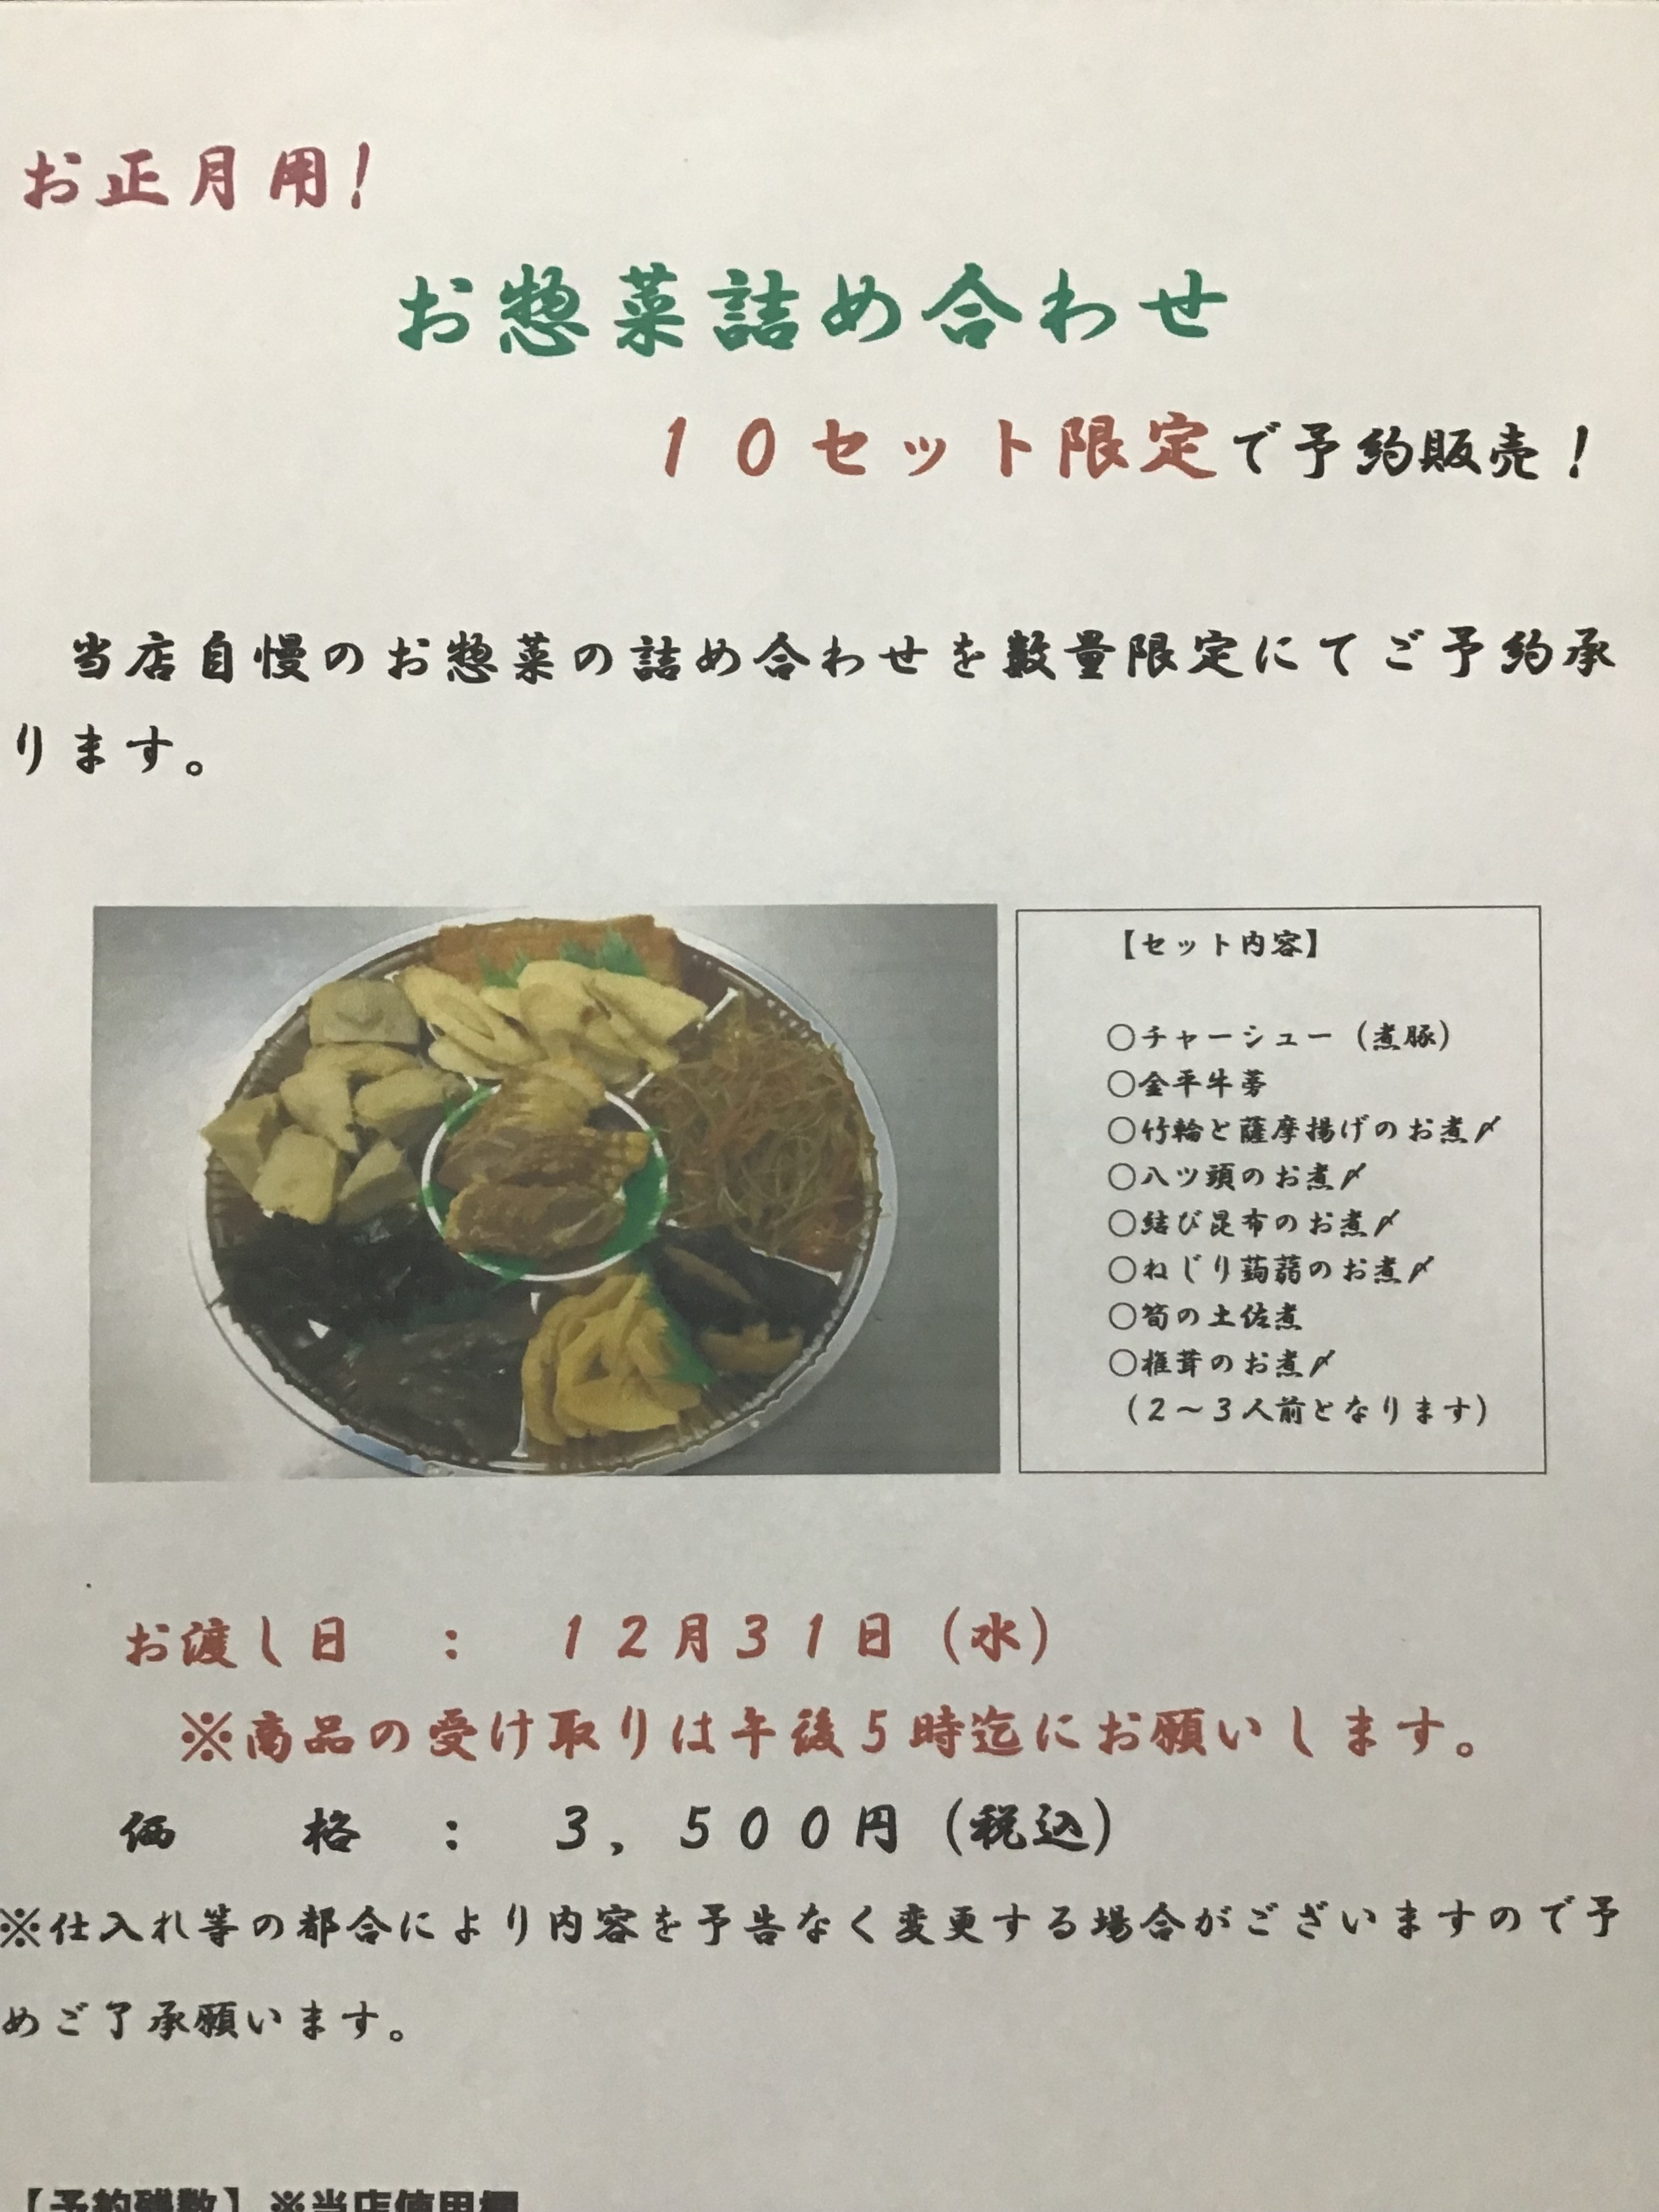 お正月用！
お惣菜詰め合わせ
１０セット限定で予約販売！
当店自慢のお惣菜の詰め合わせを数量限定にてご予約承
ります。
【セット内容】
〇チャーシュー（煮豚）
〇金平牛蒡
〇竹輪と薩摩揚げのお煮〆
〇八ツ頭のお煮〆
〇結び昆布のお煮〆
〇ねじり蒟蒻のお煮〆
〇筍の土佐煮
〇椎茸のお煮〆
（２～３人前となります）
お渡し日　：　１２月３１日（水）
※商品の受け取りは午後５時迄にお願いします。
価　　格　：　３，５００円（税込）
※仕入れ等の都合により内容を予告なく変更する場合がございますので予
めご了承願います。
【予約残数】※当店使用欄